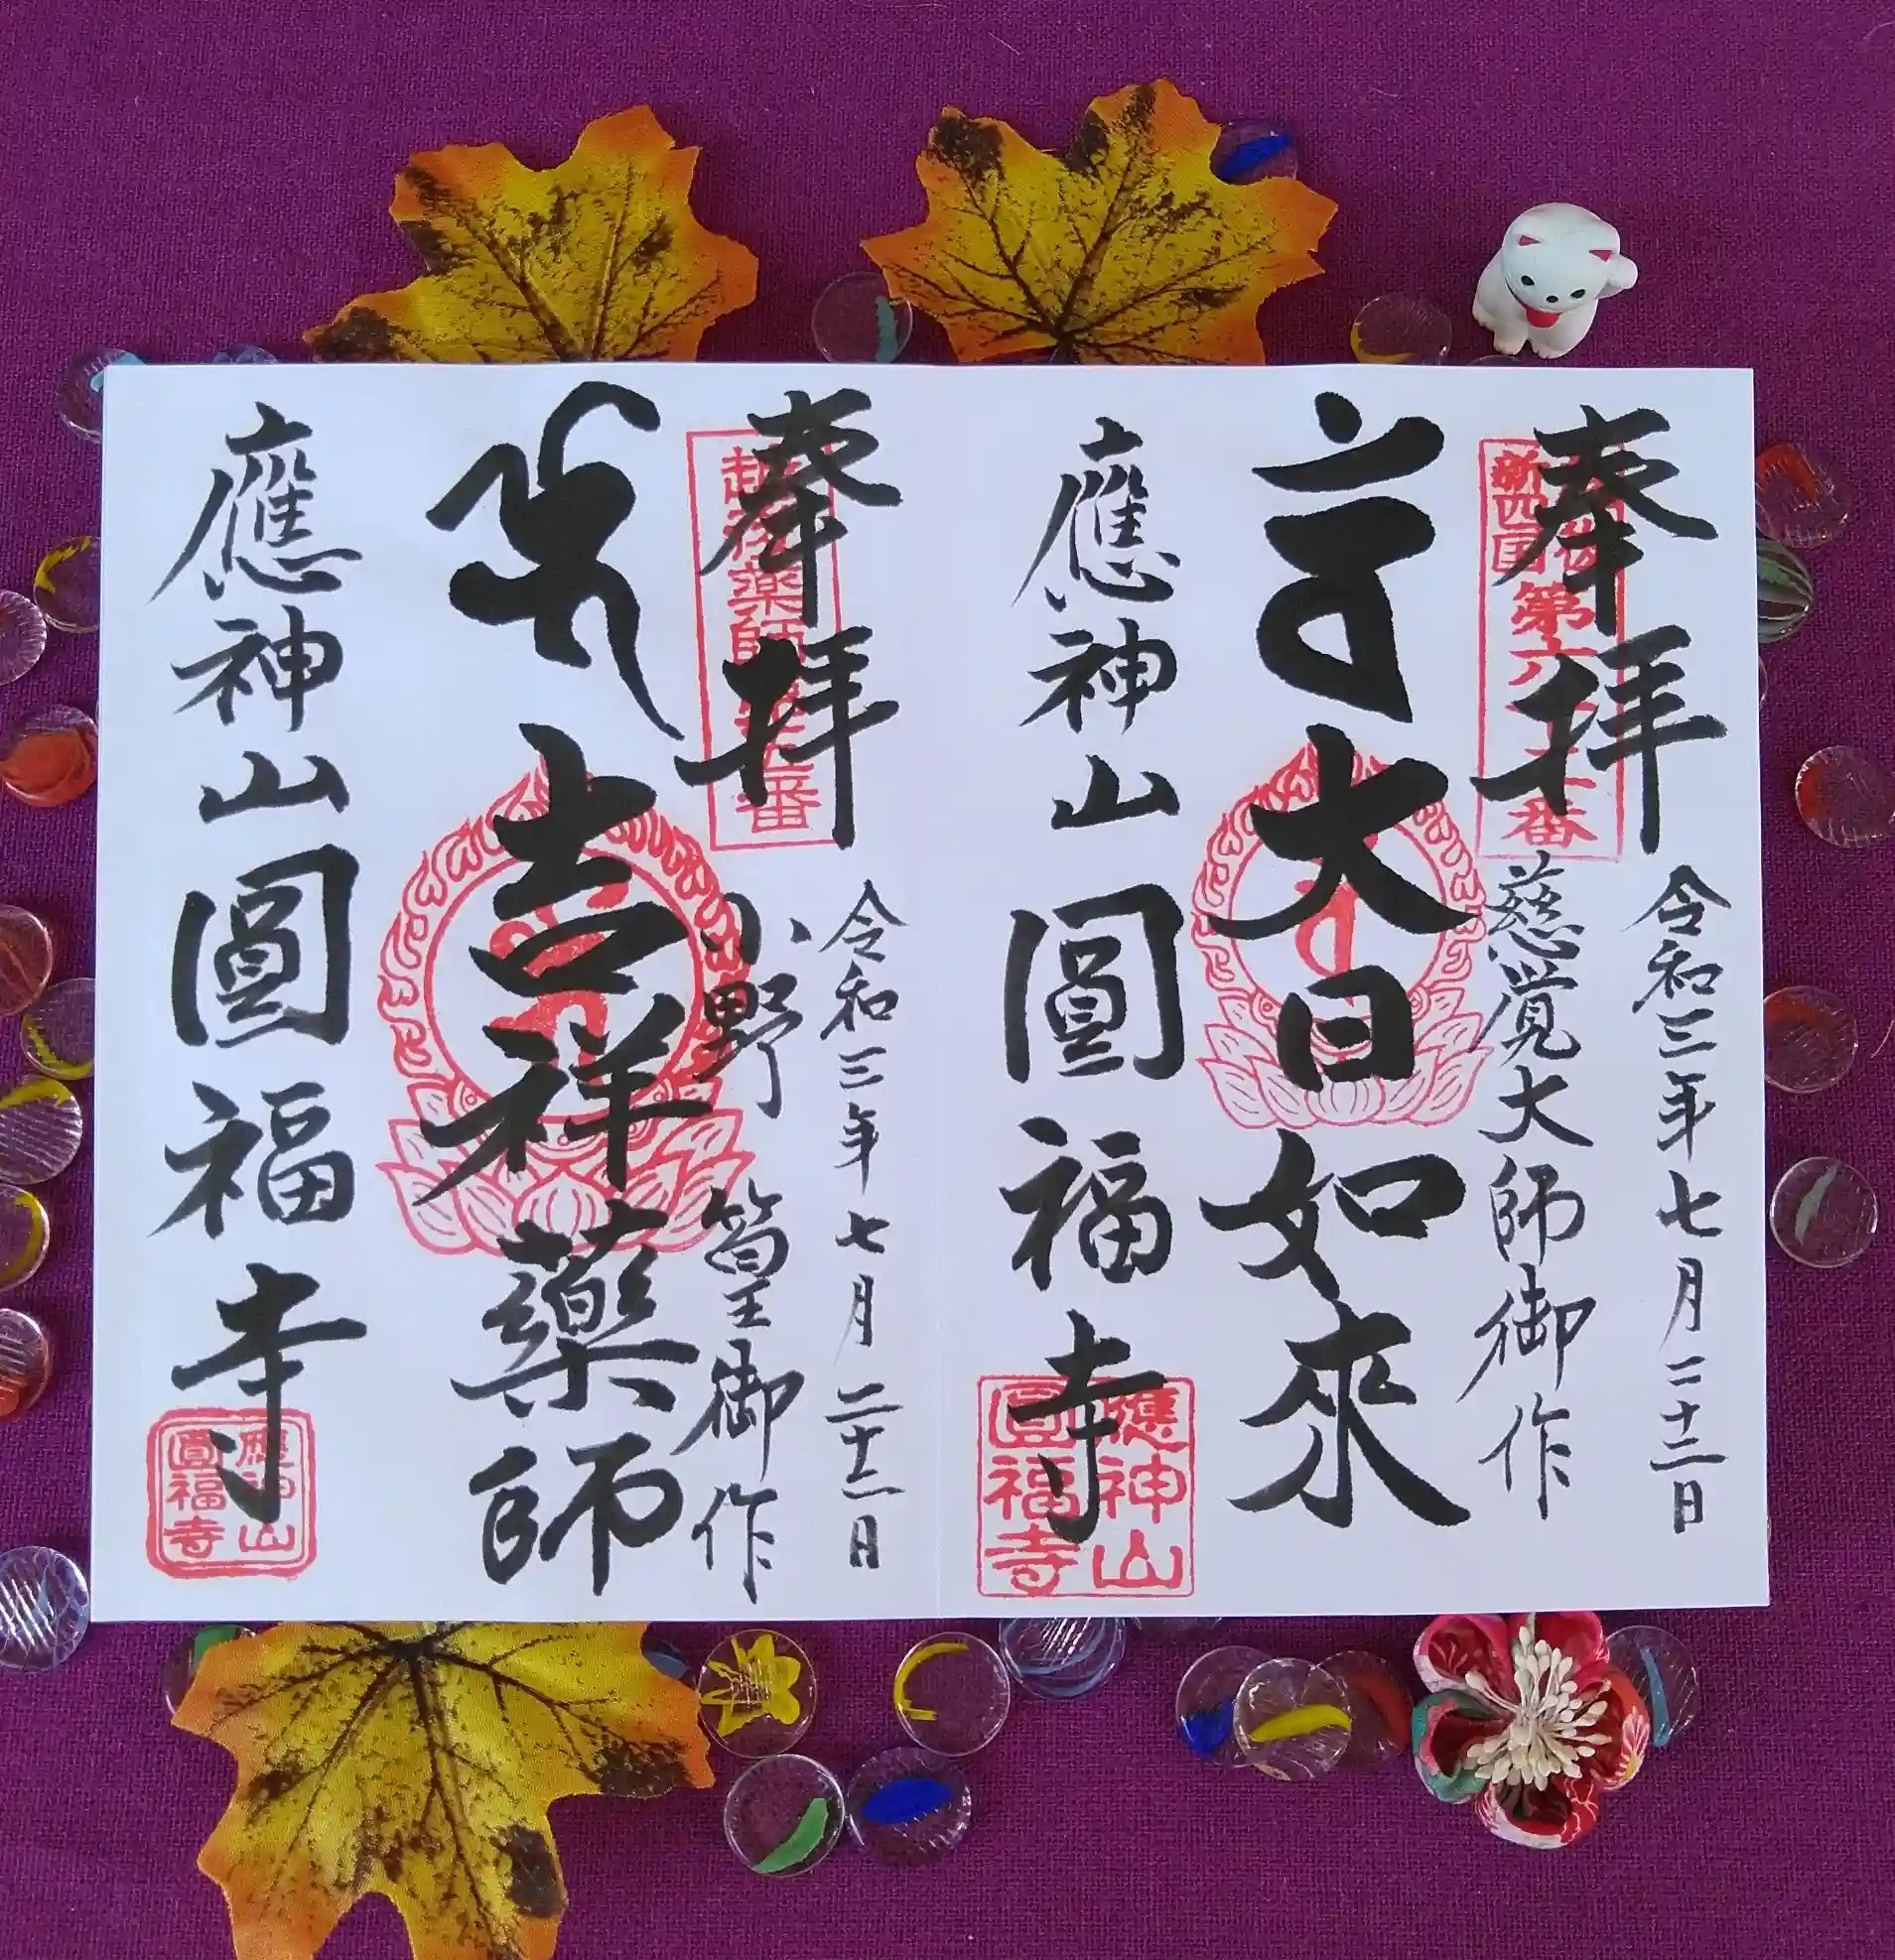 奉拝
令和三年七月二十二日
慈覚大師御作
大日如來
應神山圓福寺
應神山
圓福寺
奉拝
令和三年七月二十二日
小野篁御作
吉祥薬師
應神山圓福寺
應神山
圓福寺